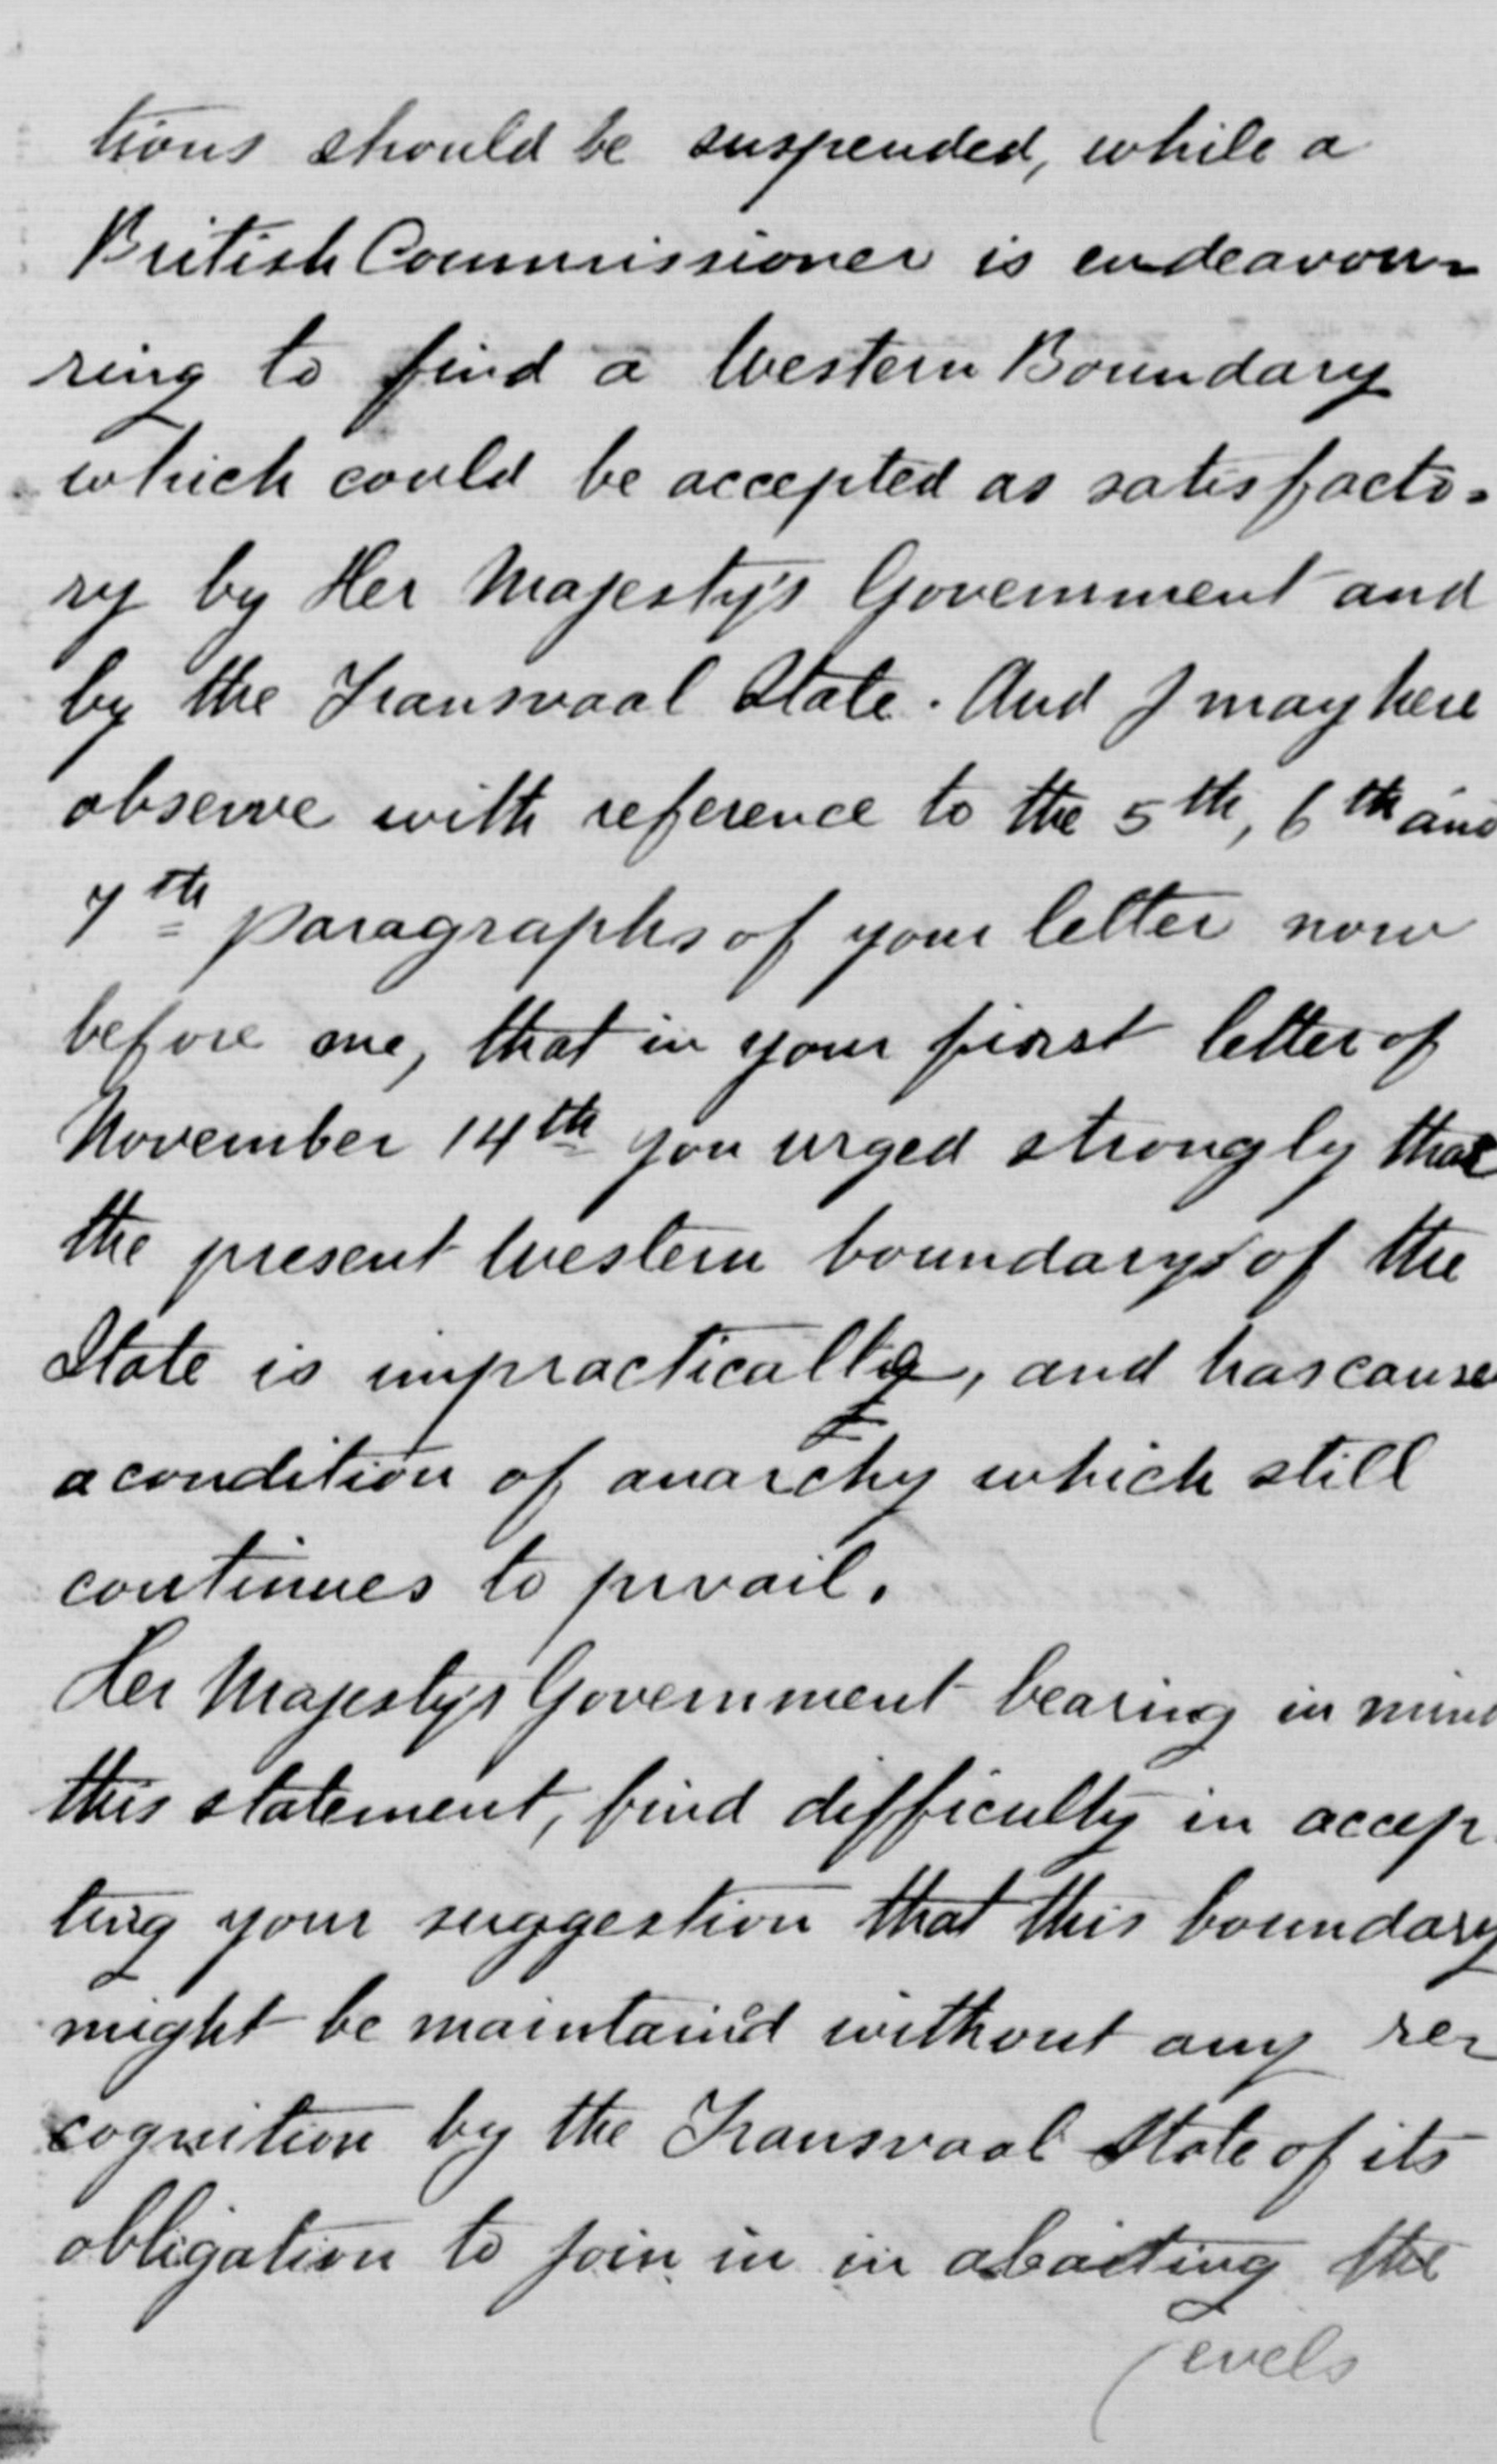 tions should be suspended, while a
British Commissioner is endeavour-
ring to find a Western Boundary
which could be accepted as satisfacto=
ry by Her Majesty's Government and
by the Transvaal State. And I may here
observe with reference to the 5th, 6th and
7th paragraphs of your letter now
before me, that in your first letter of
November 14th you urged strongly that
the present Western boundary of the
State is impracticable, and has cause
a condition of anarchy which still
continues to prvail.
Her Majesty's Government bearing in mind
this statement, find difficulty in accep
ting your suggestion that this boundary
might be maintain'd without any re-
cognition by the Transvaal State of its
obligation to join in in abaiting the
evels